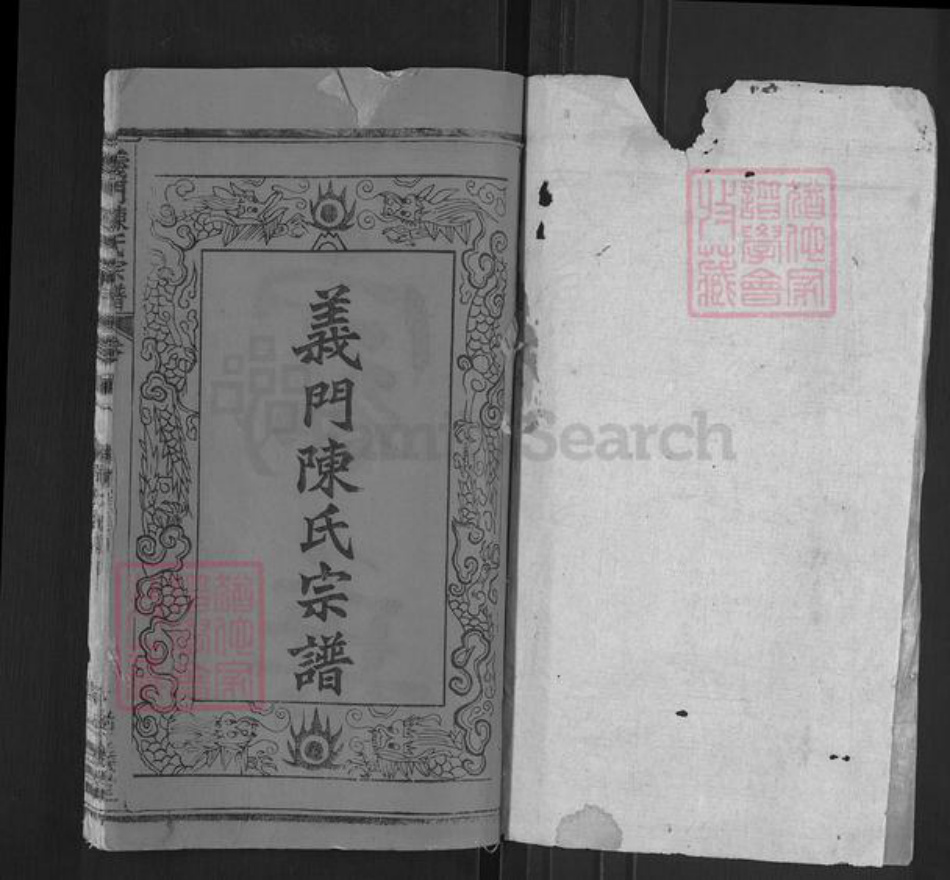 義門陳氏宗譜
義門陳氏宗譜
猶他家
譜學會
收藏
猶他家
譜學會
收藏
FamilySearch